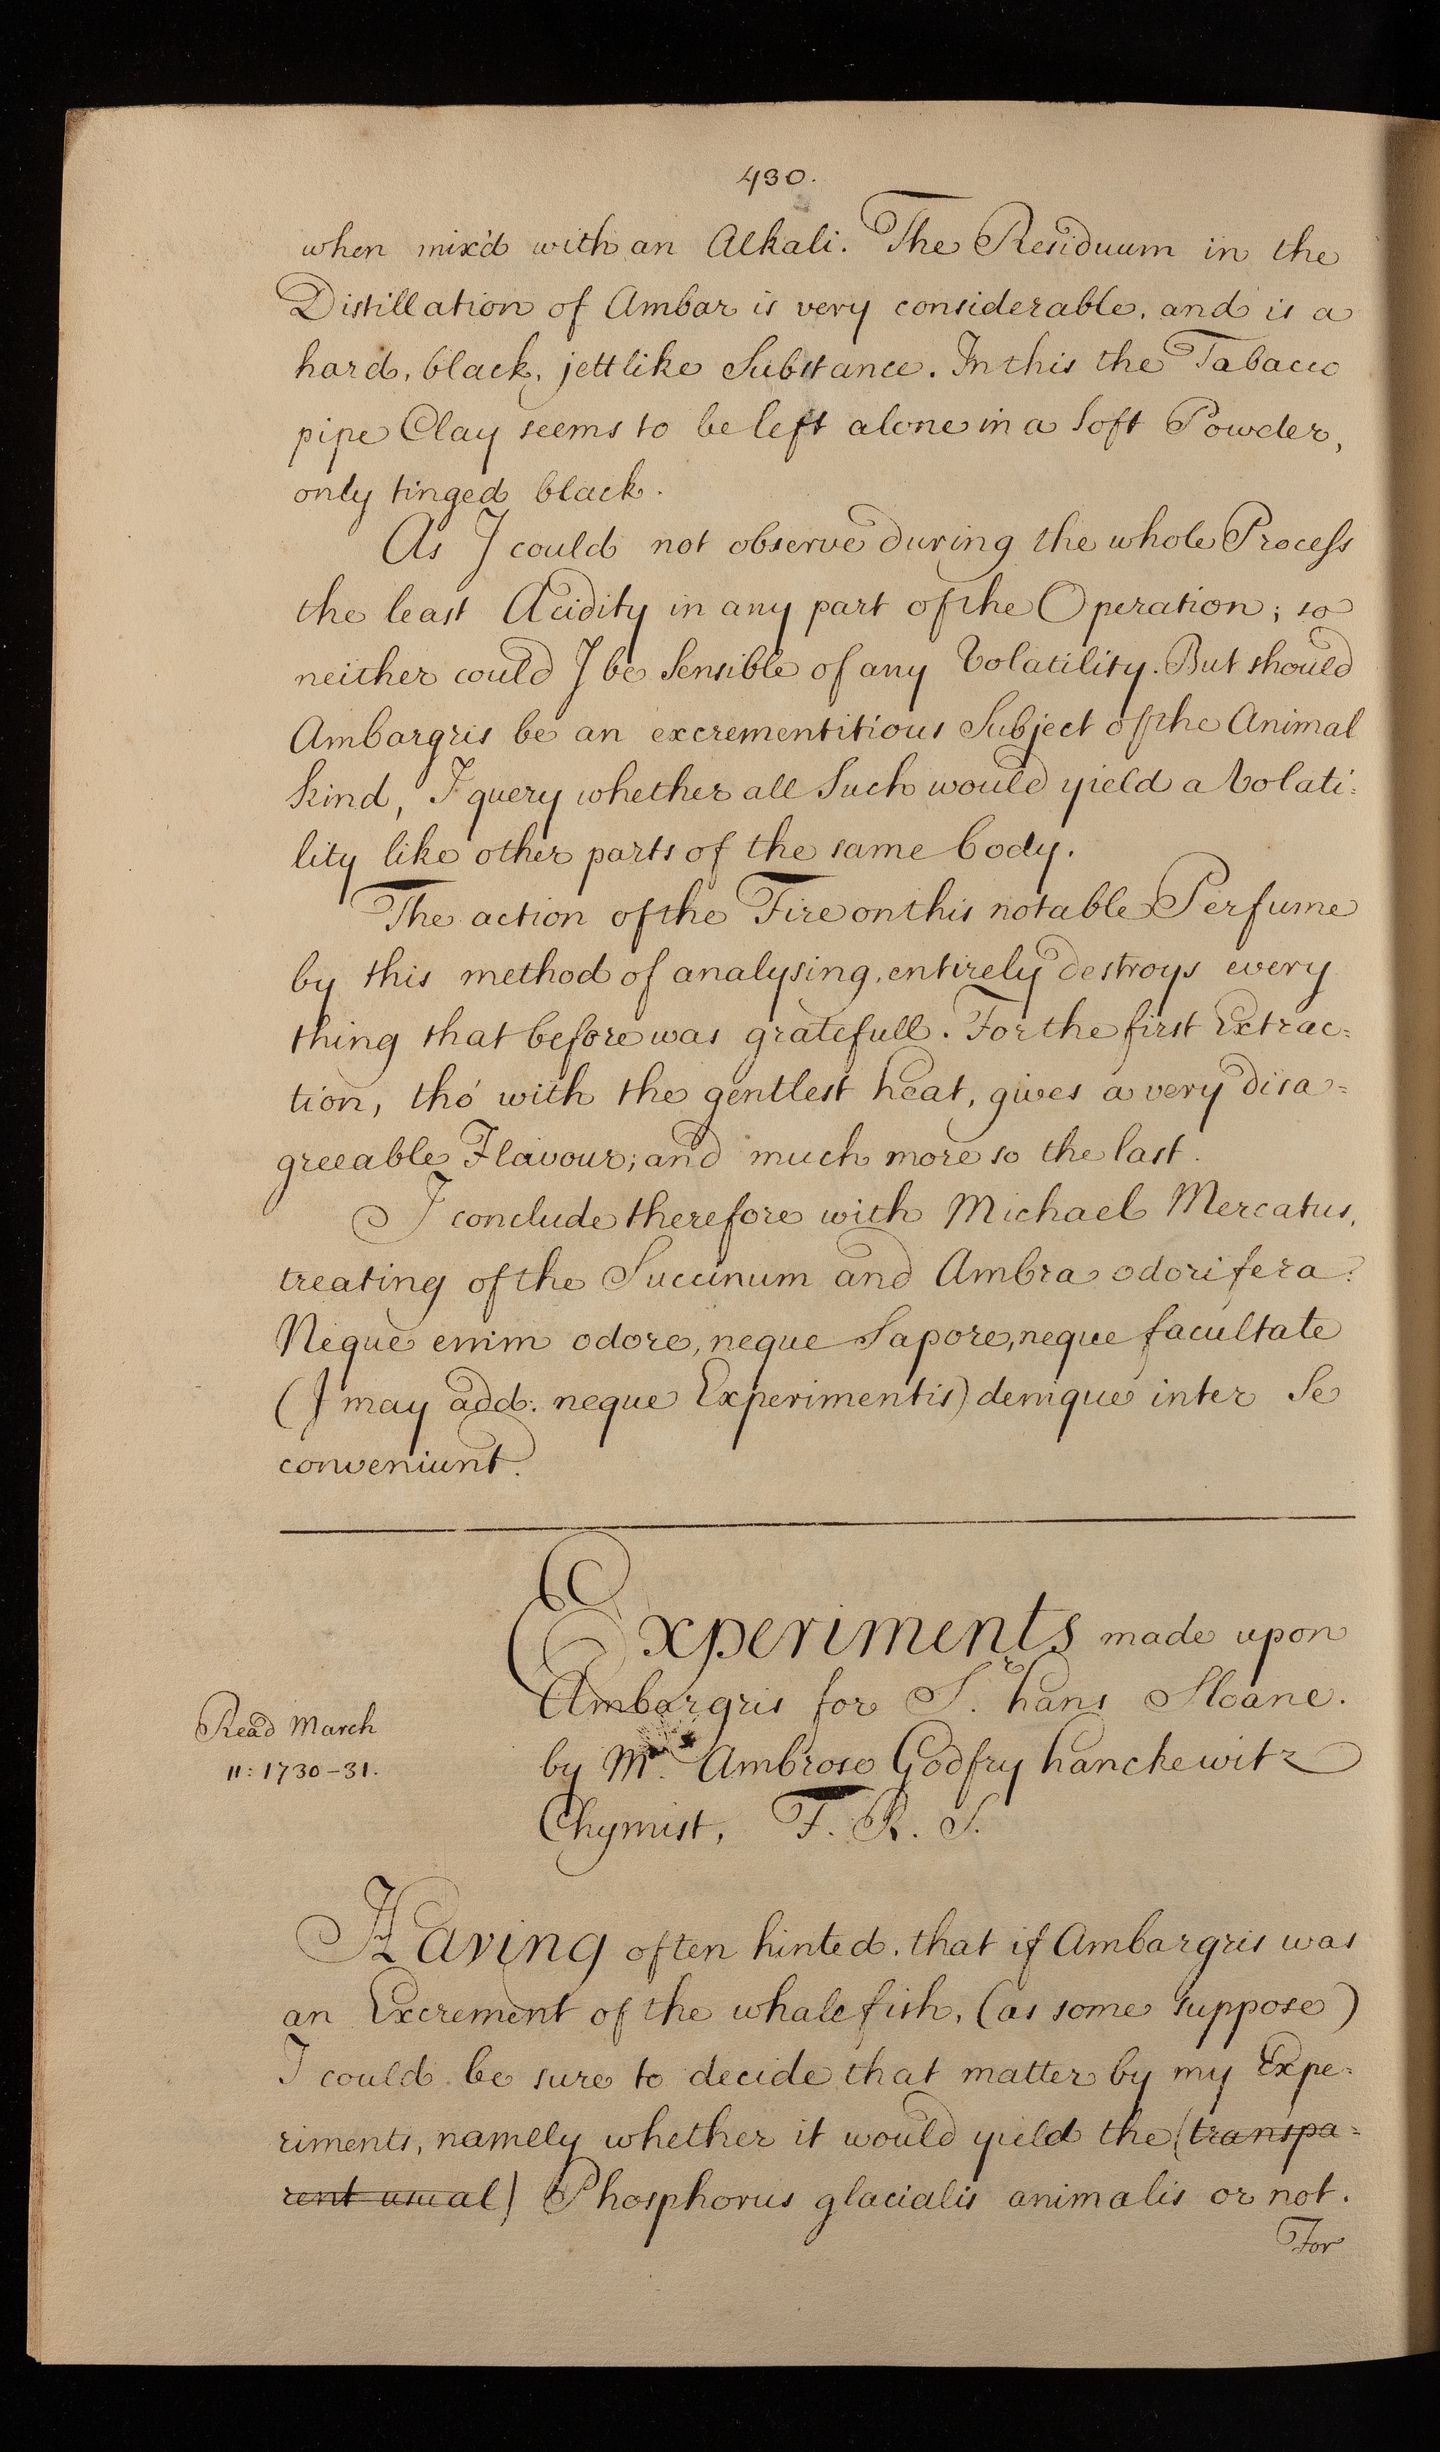 430.
when mix'd with an Alkali. The Residuum in the
Distillation of Ambar is very considerable, and is a
hard, black, jettlike Substance. In this the Tabacco
pipe Clay seems to be left alone in a Soft Powder,
only tinged black.
As I could not observe during the whole Process
the least Acidity in any part of the Operation; so
neither could I be Sensible of any Volatility. But should
Ambargris be an excrementitious Subject of the Animal
kind, I query whether all Such would yield a Volati:
lity like other parts of the same body.
The action of the Fire on this notable Perfume
by this method of analysing, entirely destroys every
thing that before was gratefull. For the first Extrac=
tion, tho' with the gentlest heat, gives a very disa=
greeable Flavour; and much more so the last.
I conclude therefore with Michael Mercatus,
treating of the Succinum and Ambra odorifera:
Neque enim odore, neque Sapore, neque facultate
(I may add: neque Experimentis) denique inter Se
conveniunt.
Experiments made upon
Ambargris for Sr. hans Sloane.
by Mr. Ambrose Godfry hanckewitz
Chymist, F. R. S.
Read March
11: 1730-31.
Having often hinted, that if Ambargris was
an Excrement of the whale fish, (as some suppose)
I could be sure to decide that matter by my Expe=
riments, namely whether it would yield the (transpa=
rent usual) Phosphorus glacialis animalis or not.
For